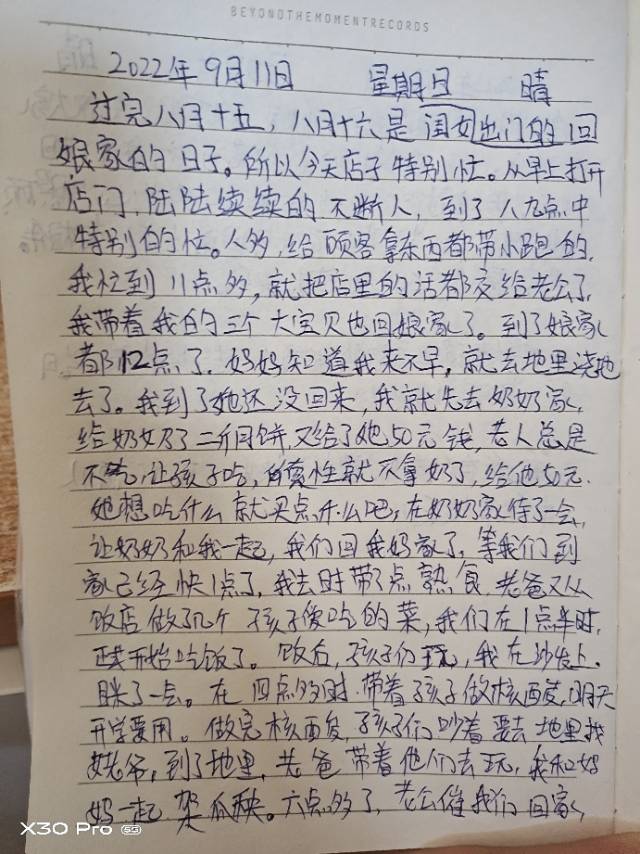 BEYONDTHEMOMENTRECORDS
2022年9月11日 星期日 晴
过完八月十五，八月十六是闺女出门的回
娘家的日子。所以今天店子特别忙。从早上打开
店门，陆陆续续的不断人，到了八九点中
特别的忙。人多，给顾客拿东西都带小跑的，
我忙到11点多，就把店里的活都交给老公了，
我带着我的三个大宝贝也回娘家了。到了娘家
都12点了，妈妈知道我来不早，就去地里浇地
去了。我到了她还没回来，我就先去奶奶家，
给奶奶了二斤月饼，又给了她50元钱，老人总是
不吃，让孩子吃，索性就不拿奶了，给他50元，
她想吃什么就买点什么吧，在奶奶家待了一会，
让奶奶和我一起，我们回我妈家了，等我们到
家已经快1点了，我去时带了点熟食，老爸又从
饭店做了几个孩子爱吃的菜，我们在1点半时，
正式开始吃饭了。饭后，孩子们玩，我在沙发上
眯了一会。在四点多时，带着孩子做核酸，明天
开学要用。做完核酸，孩子们吵着要去地里找
姥爷，到了地里，老爸带着他们去玩，我和妈
妈一起架瓜秧。六点多了，老公催我们回家，
X30 Pro 5G